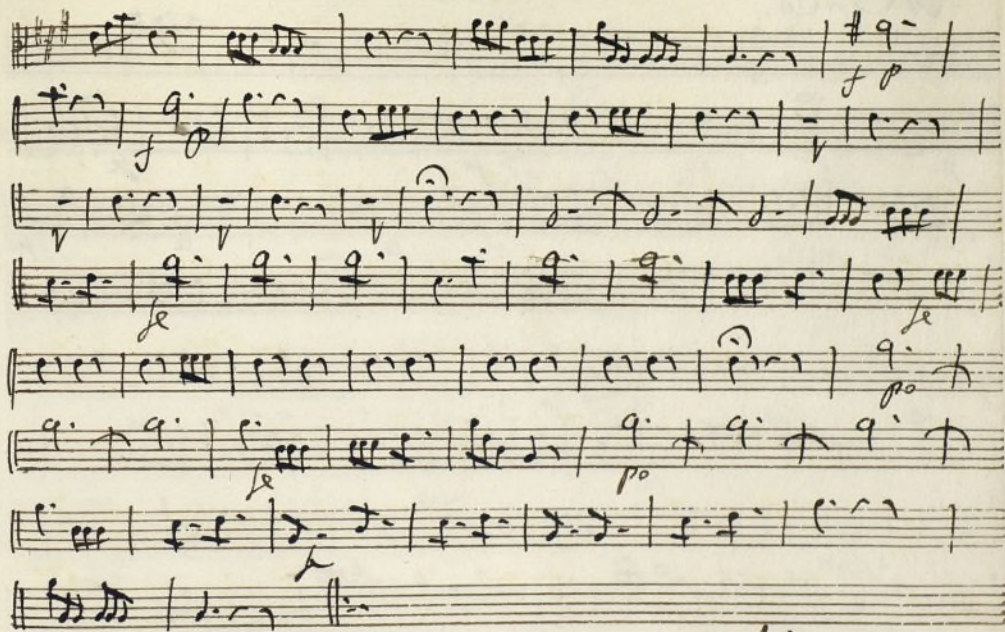 f p
f p
fe fe
po
fe po
f